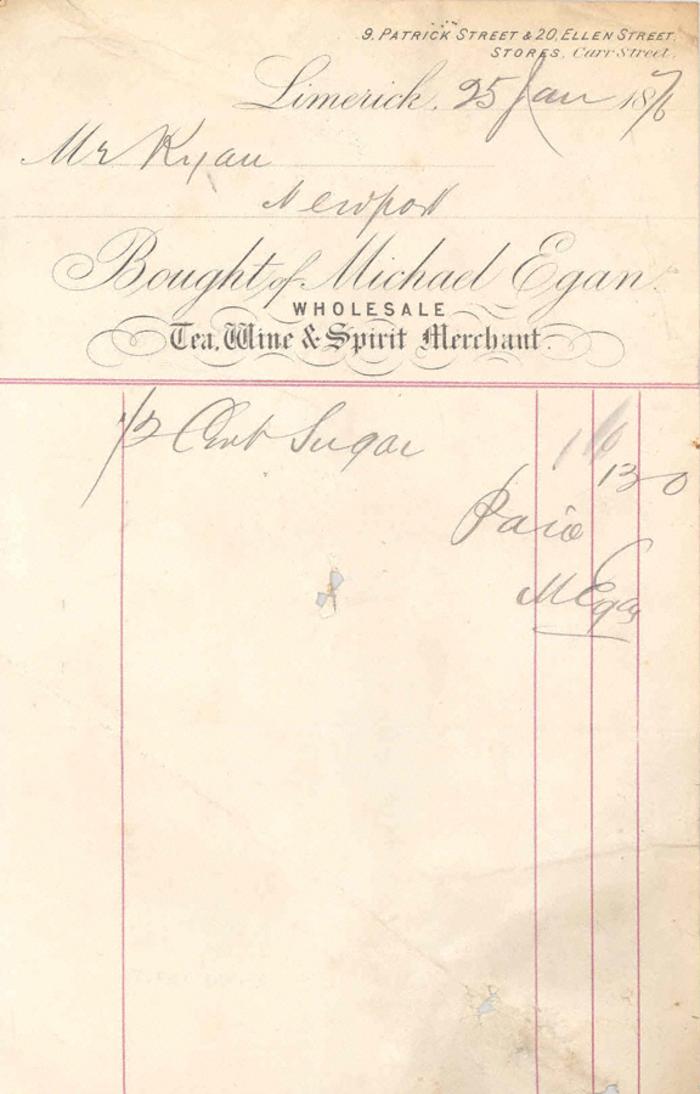 9, PATRICK STREET & 20, ELLEN STREET,
STORES, Carr Street.
Limerick, 25 Jan 1876
Mr Ryan
Newport
Bought of Michael Egan
WHOLESALE
Tea, Wine & Spirit Merchant.
1/2 Cwt Sugar
13 0
Paid
M Egan